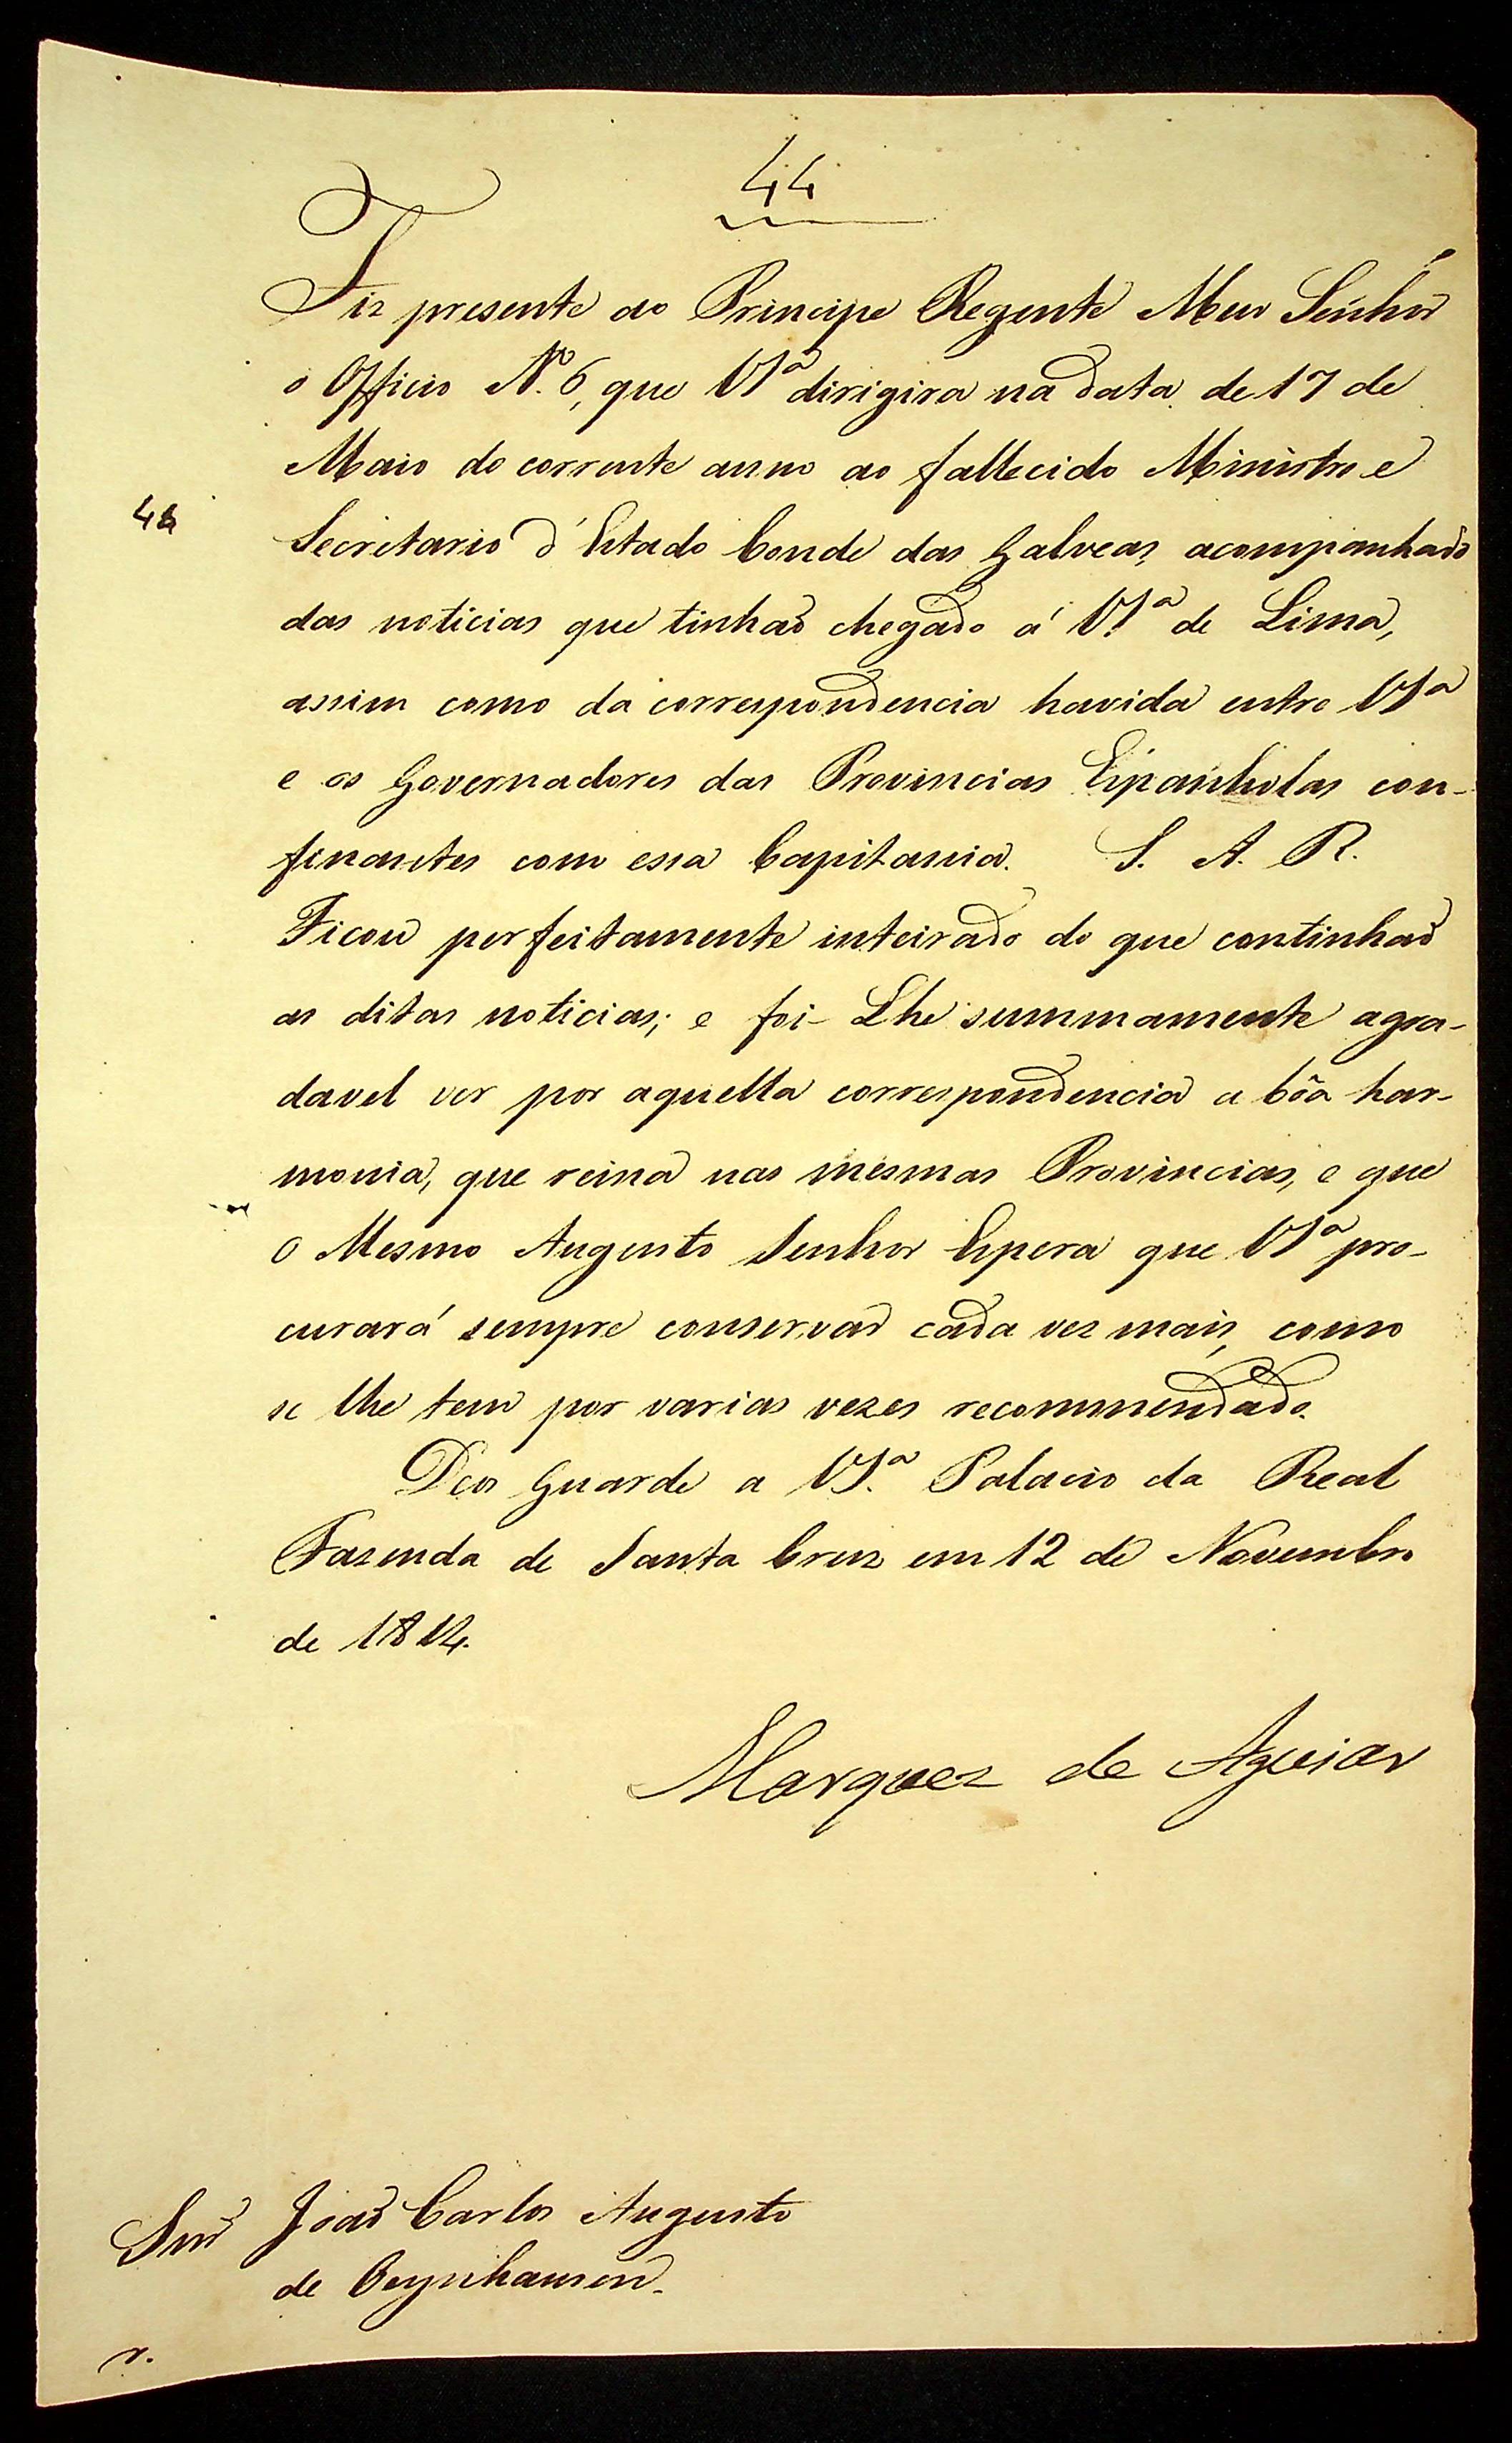 44
Fiz presente ao Principe Regente Meu Senhor
o Officio N.º 6, que VSª dirigira na data de 17 de
Maio do corrente anno ao fallecido Ministro e
44
Secretario d'Estado Conde das Galveas, acompanhado
das noticias que tinhaõ chegado á VSª de Lima,
assim como da correspondencia havida entre VSª
e os Governadores das Provincias Espanholas con-
finantes com essa Capitania. S. A. R.
Ficou perfeitamente inteirado do que continhaõ
as ditas noticias; e foi-Lhe summamente agra-
davel ver por aquella correspondencia a bõa har-
monia, que reina nas mesmas Provincias, e que
O Mesmo Augusto Senhor Espera que VSª pro-
curará sempre conservar cada vez mais, como
se lhe tem por varias vezes recommendado.
Deos Guarde a VSª. Palacio da Real
Fazenda de Santa Cruz em 12 de Novembro
de 1814.
Marquez de Aguiar
Snr João Carlos Augusto
de Oeynhausen.